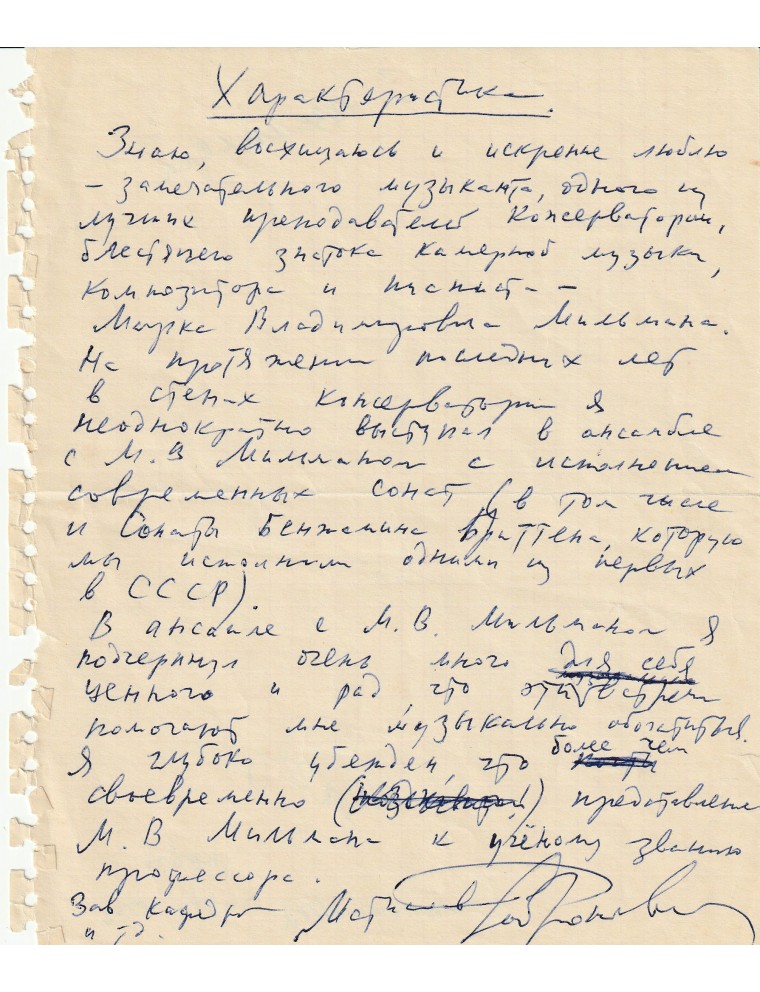 Характеристика.
Знаю, восхищаюсь и искренне люблю
– замечательного музыканта, одного из
лучших преподавателей Консерватории,
блестящего знатока камерной музыки,
композитора и пианиста –
Марка Владимировича Мильмана.
На протяжении последних лет
в стенах консерватории я
неоднократно выступал в ансамбле
с М.В Мильманом с исполнением
современных сонат (в том числе
и Сонаты Бенжамина Бриттена, которую
мы исполнили одними из первых
в СССР).
В ансамбле с М.В. Мильманом я
подчеркнул очень много для себя
ценного и рад, что эти встречи
помогают мне музыкально обогатиться.
Я глубоко убежден, что более чем
своевременно () представление
М.В Мильмана к учёному званию
профессора.
Зав кафедрой Мстислав Ростропович
и тд.